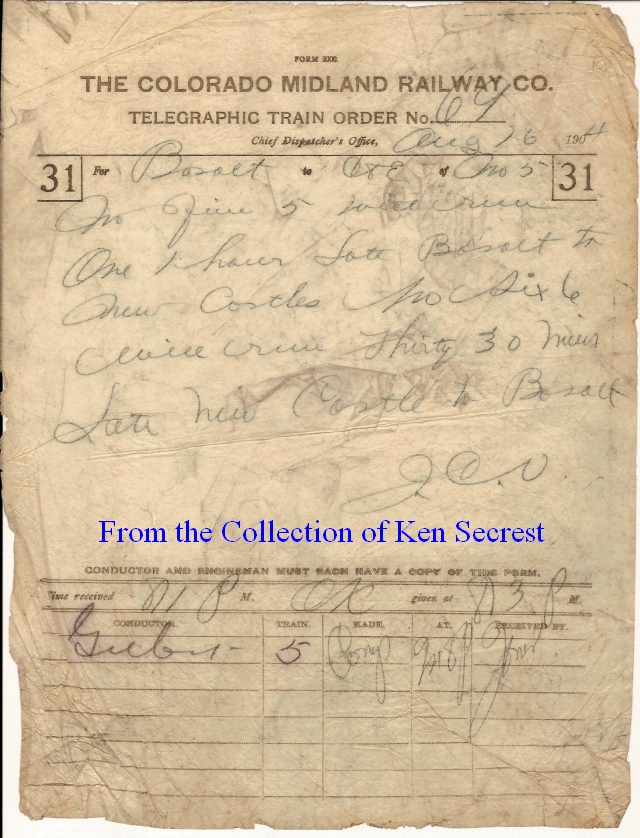 FORM 2000.
THE COLORADO MIDLAND RAILWAY CO.
TELEGRAPHIC TRAIN ORDER No. 64
Chief Dispatcher's Office, Aug 16 1904
31 For Basalt to C&E of No 5 31
No Five 5 will run
One 1 hour late Basalt to
New Castle No Six 6
will run Thirty 30 mins
late New Castle to Basalt
J.C.D.
From the Collection of Ken Secrest
CONDUCTOR AND ENGINEMAN MUST EACH HAVE A COPY OF THIS FORM.
Time received P M. OK given at P M.
CONDUCTOR. TRAIN. MADE. AT. RECEIVED BY.
5